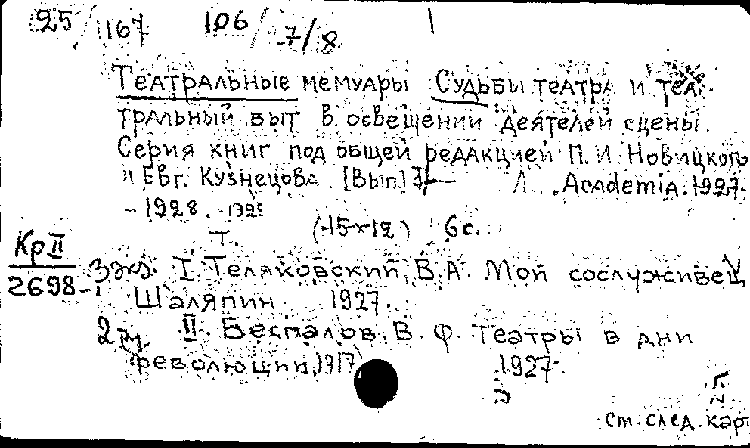 25/1167 106/7/8
Театральные мемуары Судьбы театра и теа-
тральный быт в освещении деятелей сцены.
Серия книг под общей редакцией П. И. Новицкого
и Евг. Кузнецова [Вып] Л. Academia. 1927.
- 1928.
(15x12) 6с.
Т.
Кр II 3 экз. I. Теляковский, В. А. Мой сослуживец
2698-1 Шаляпин 1927.
2 II. Беспалов, В. Ф. Театры в дни
революции, 1917 1927.
См. след. кар